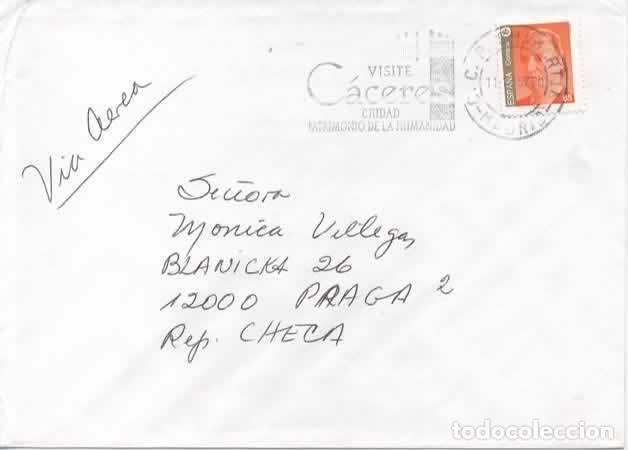 VISITE
Cáceres
CIUDAD
PATRIMONIO DE LA HUMANIDAD
ESPAÑA Correos
65
MADRID
Via Aerea
Señora
Monica Villegas
BLANICKA 26
12000 PRAGA 2
Rep. CHECA
todocoleccion